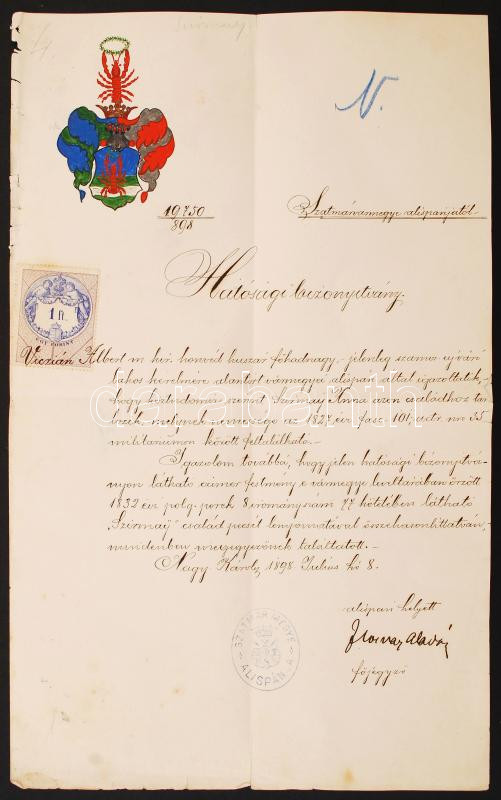 Szirmay
N.
19750
898
Szatmárvármegye alispánjától
Hatósági bizonyitvány.
1 ft.
EGY FORINT
Viczián Albert m. kir. honvéd huszár főhadnagy, jelenleg szamos ujvári
lakos kérelmére alantirt vármegyei alispán által igazoltatik,
hogy köztudomás szerint Szirmay Anna azon családhoz tar-
tozik, melynek nemessége az 1827. évi fasc. 10, actr. nr. 35
militanumon között feltalálható.-
Igazolom továbbá, hogy jelen hatósági bizonyitvá-
nyon látható czimer festmény e vármegye levéltárában őrzött
1832 évi polg. perek 8 városnyszám 77 kötetében látható
"Szirmay" család pecsét lenyomatával összehasonlittatván,
mindenben megegyezőnek találtatott.-
Nagy Károly 1898 Julius hó 8.
alispán helyett
főjegyző
SZATMÁR MEGYE
ALISPÁNJA
darabanth